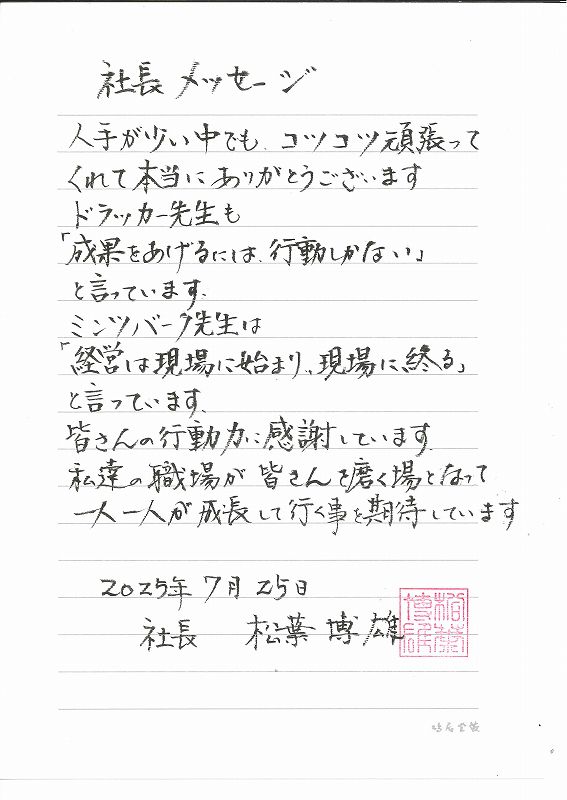 社長メッセージ
人手が少い中でも、コツコツ頑張って
くれて本当にありがとうございます
ドラッカー先生も
「成果をあげるには、行動しかない」
と言っています。
ミンツバーク先生は
「経営は現場に始まり、現場に終る」
と言っています。
皆さんの行動力に感謝しています。
私達の職場が皆さんを磨く場となって
一人一人が成長して行く事を期待しています
2025年7月25日
社長 松葉博雄
松葉
博雄